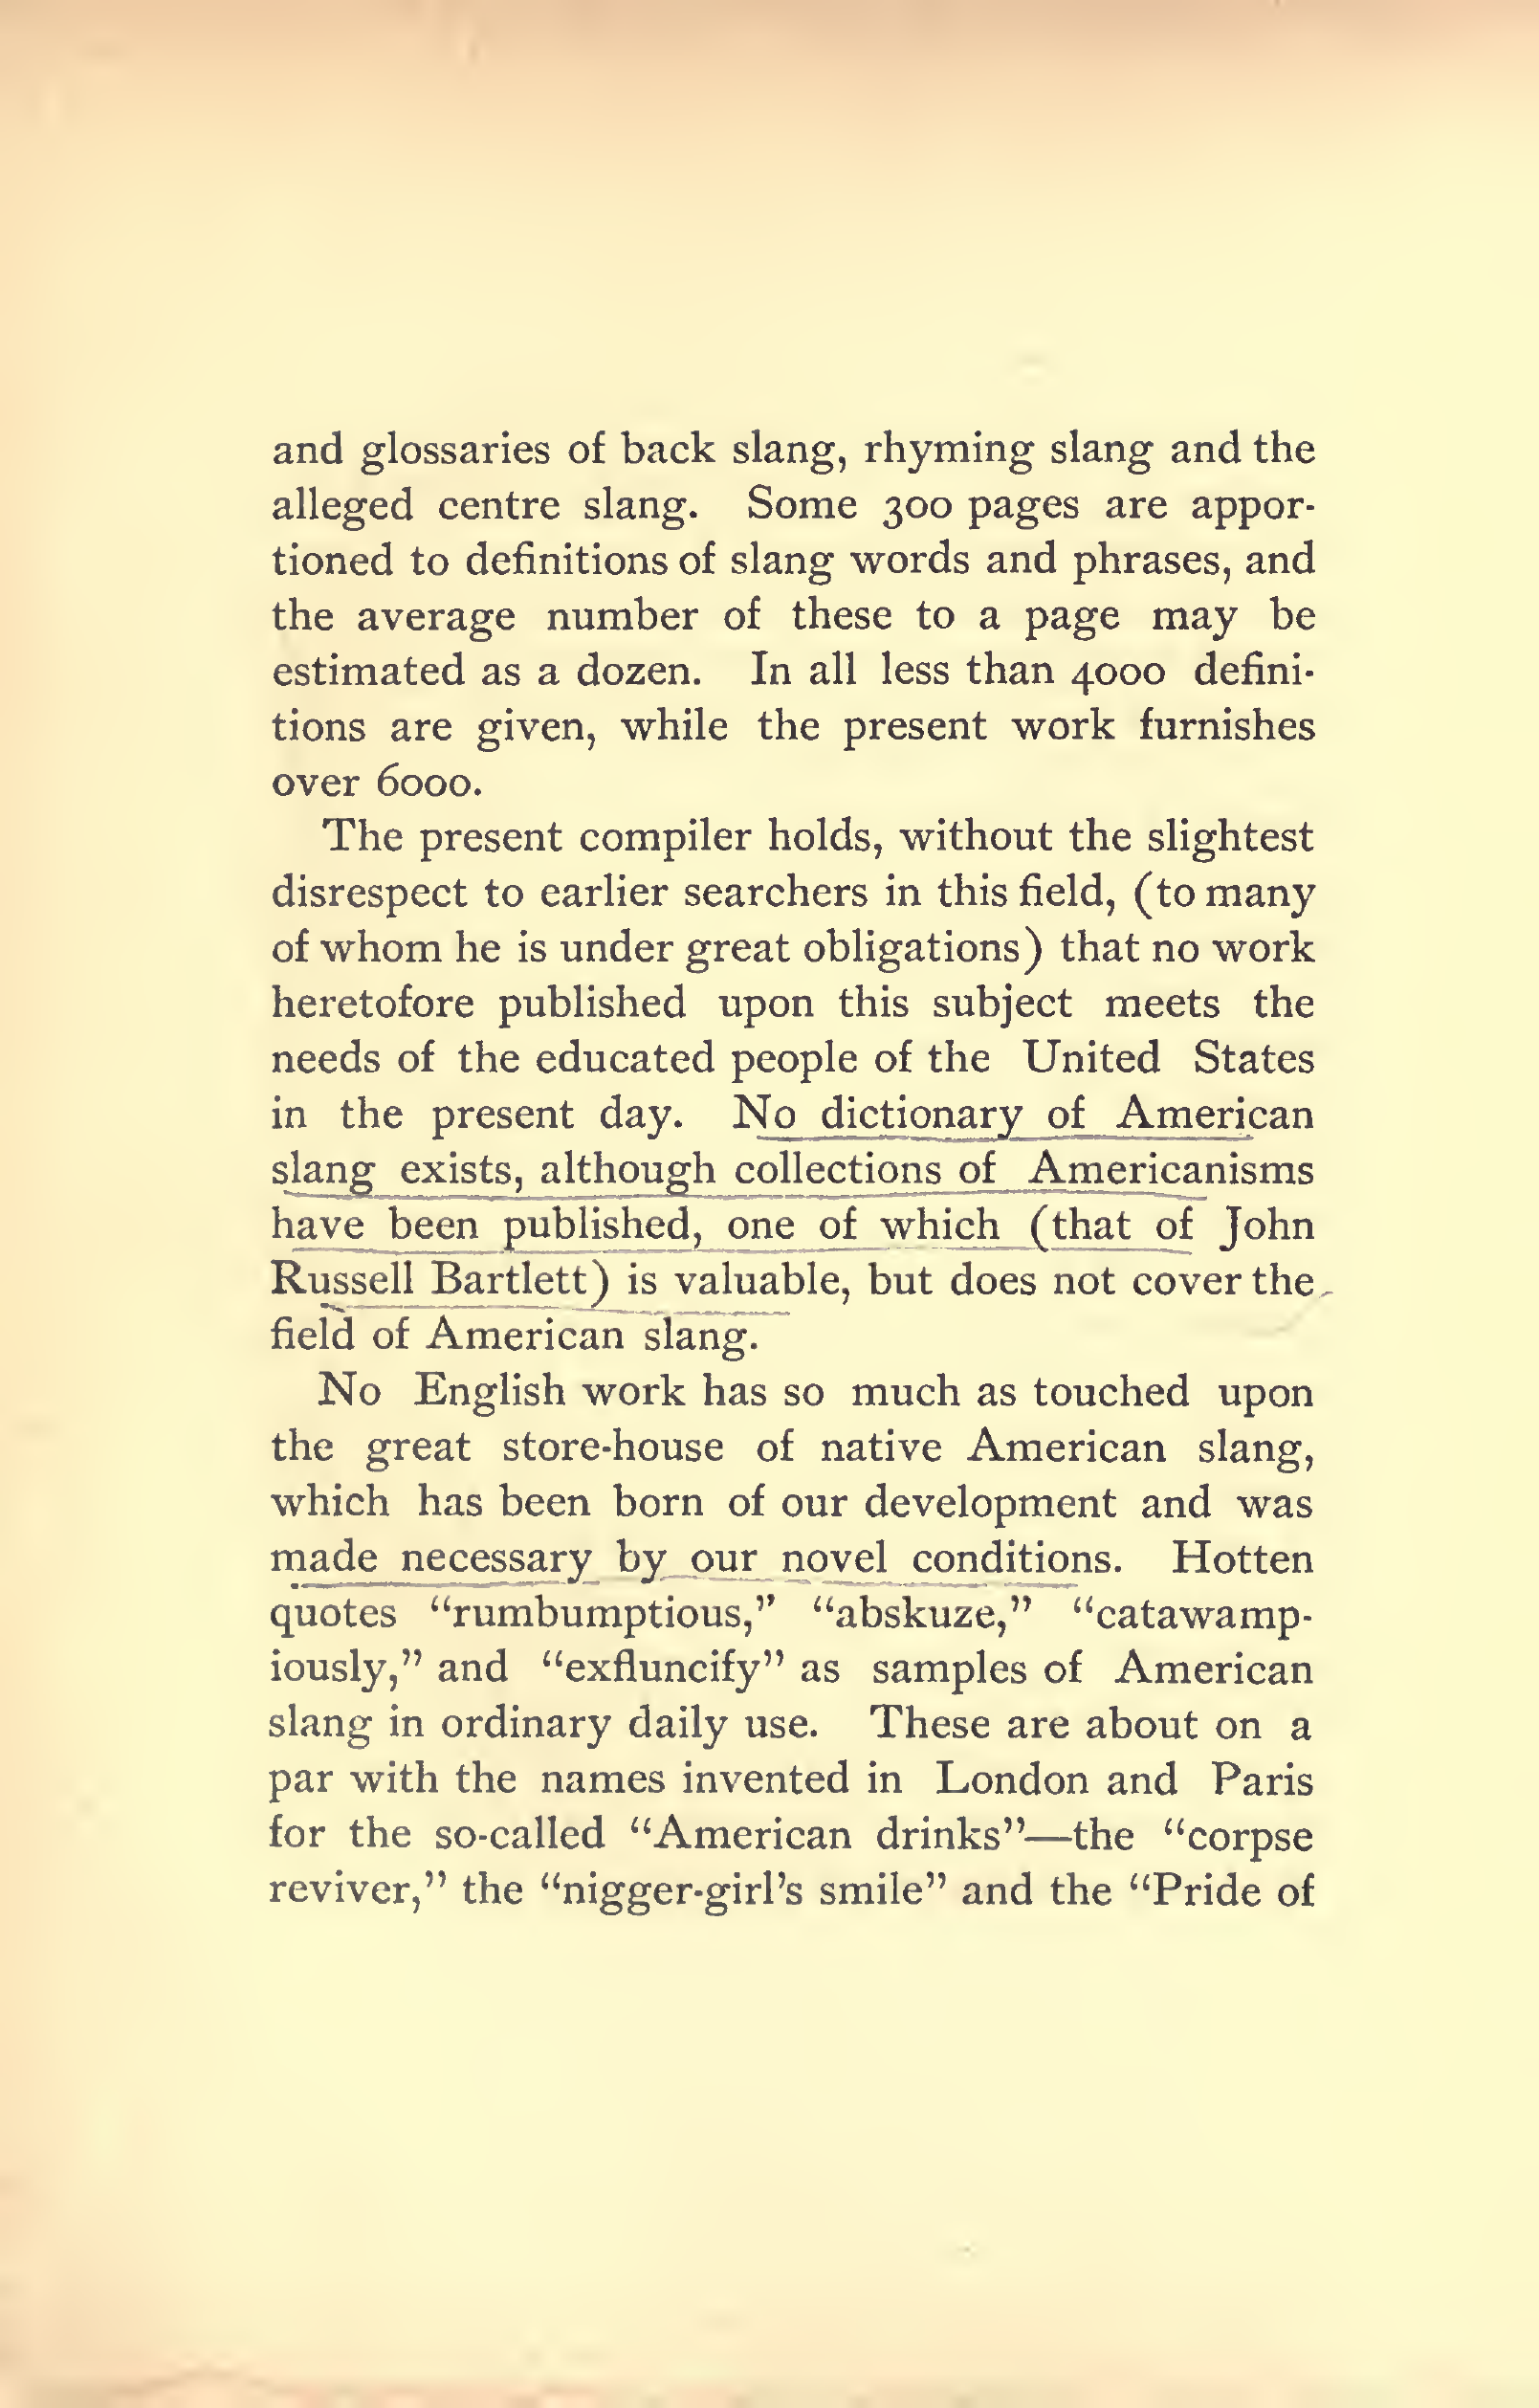 and glossaries of back slang, rhyming slang and the
alleged centre slang. Some 300 pages are appor-
tioned to definitions of slang words and phrases, and
the average number of these to a page may be
estimated as a dozen. In all less than 4000 defini-
tions are given, while the present work furnishes
over 6000.
The present compiler holds, without the slightest
disrespect to earlier searchers in this field, (to many
of whom he is under great obligations) that no work
heretofore published upon this subject meets the
needs of the educated people of the United States
in the present day. No dictionary of American
slang exists, although collections of Americanisms
have been published, one of which (that of John
Russell Bartlett) is valuable, but does not cover the
field of American slang.
No English work has so much as touched upon
the great store-house of native American slang,
which has been born of our development and was
made necessary by our novel conditions. Hotten
quotes “rumbumptious,” “abskuze,” “catawamp-
iously,” and “exfluncify” as samples of American
slang in ordinary daily use. These are about on a
par with the names invented in London and Paris
for the so-called “American drinks”—the “corpse
reviver,” the “nigger-girl’s smile” and the “Pride of